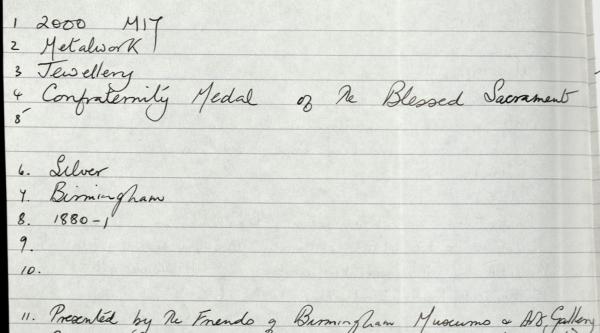 1 2000 M17
2 Metalwork
3 Jewellery
4 Confraternity Medal of the Blessed Sacrament
5
6. Silver
7. Birmingham
8. 1880-1
9.
10.
11. Presented by the Friends of Birmingham Museums & Art Gallery